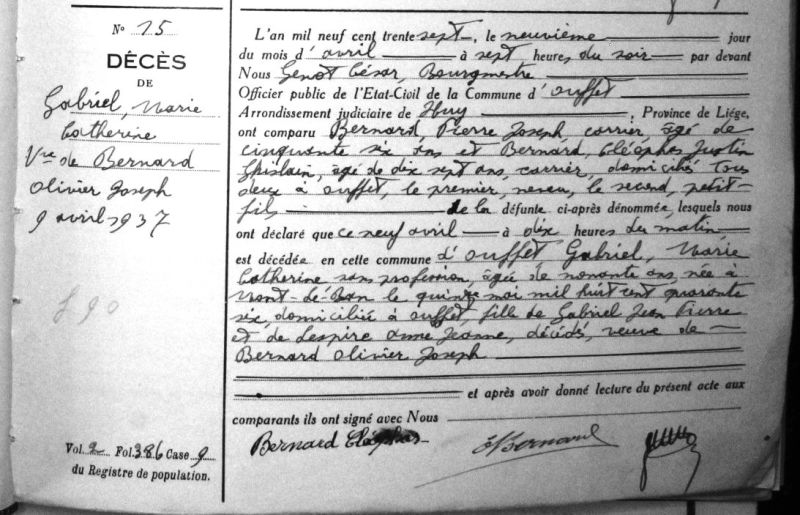 N° 15
DÉCÈS
DE
Gabriel, Marie
Catherine
Vve de Bernard
Olivier Joseph
9 avril 1937
Vol. 2 Fol. 386 Case 9
du Registre de population.
L'an mil neuf cent trente sept, le neuvième jour
du mois d'avril à sept heures du soir par devant
Nous Genot César, Bourgmestre
Officier public de l'Etat-Civil de la Commune d'Ouffet
Arrondissement judiciaire de Huy, Province de Liége,
ont comparu Bernard, Pierre Joseph, carrier, âgé de
cinquante six ans et Bernard, Cléophas Justin
Ghislain, âgé de dix sept ans, carrier, domiciliés tous
deux à Ouffet, le premier, neveu, le second, petit-
fils de la défunte ci-après dénommée, lesquels nous
ont déclaré que ce neuf avril à dix heures du matin
est décédée en cette commune d'Ouffet Gabriel, Marie
Catherine sans profession, âgée de nonante ans, née à
Mont-de-Ban le quinze mai mil huit cent quarante
six domiciliée à Ouffet, fille de Gabriel Jean Pierre
et de Lespire Anne Jeanne, décédés, veuve de
Bernard Olivier Joseph
et après avoir donné lecture du présent acte aux
comparants ils ont signé avec Nous
Bernard Cléophas
Bernard